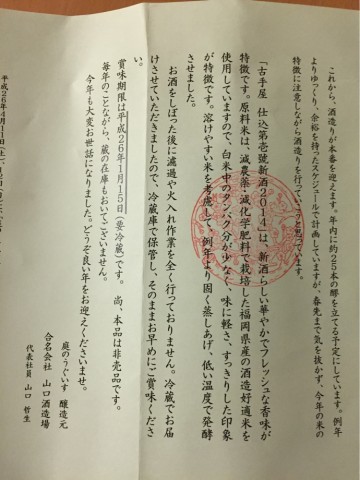 これから、酒造りが本番を迎えます。年内に約25本の醪を立てる予定にしています。例年
よりゆっくり、余裕を持ったスケジュールで計画していますが、春先まで気を抜かず、今年の米の
特徴に注意しながら酒造りを行っていこうと思っています。
「古手屋 仕込第壱號新酒2014」は、新酒らしい華やかでフレッシュな香味が
特徴です。原料米は、減農薬・減化学肥料で栽培した福岡県産の酒造好適米を
使用していますので、白米中のタンパク分が少なく、味に軽さ、すっきりした印象
が特徴です。溶けやすい米を考慮して、例年より固く蒸しあげ、低い温度で発酵
させました。
お酒をしぼった後に濾過や火入れ作業を全く行っておりません。冷蔵でお届
けさせていただきましたので、冷蔵庫で保管し、そのままお早めにご賞味くださ
い。
賞味期限は平成26年1月15日(要冷蔵)です。 尚、本品は非売品です。
毎年のことながら、蔵の在庫もおいてございません。
今年も大変お世話になりました。どうぞ良い年をお迎えくださいませ。
庭のうぐいす 醸造元
合名会社 山口酒造場
代表社員 山口 哲生
平成26年4月11日(土)、12日(日)